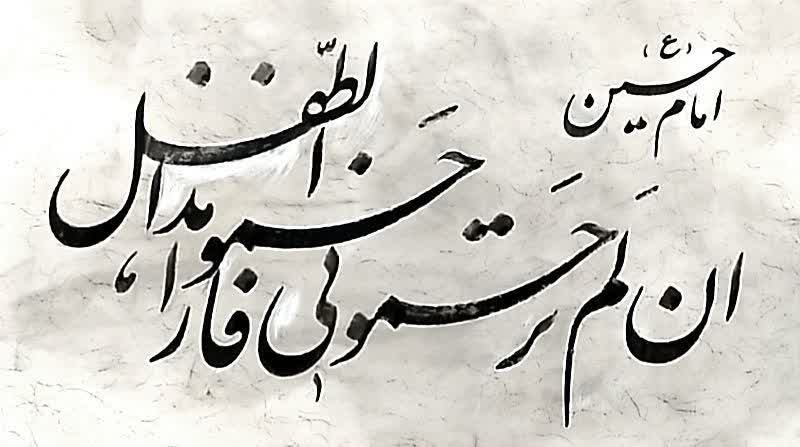 امام حسین (ع)
ان لَم ترحَمونی فارحَموا هذا الطّفل